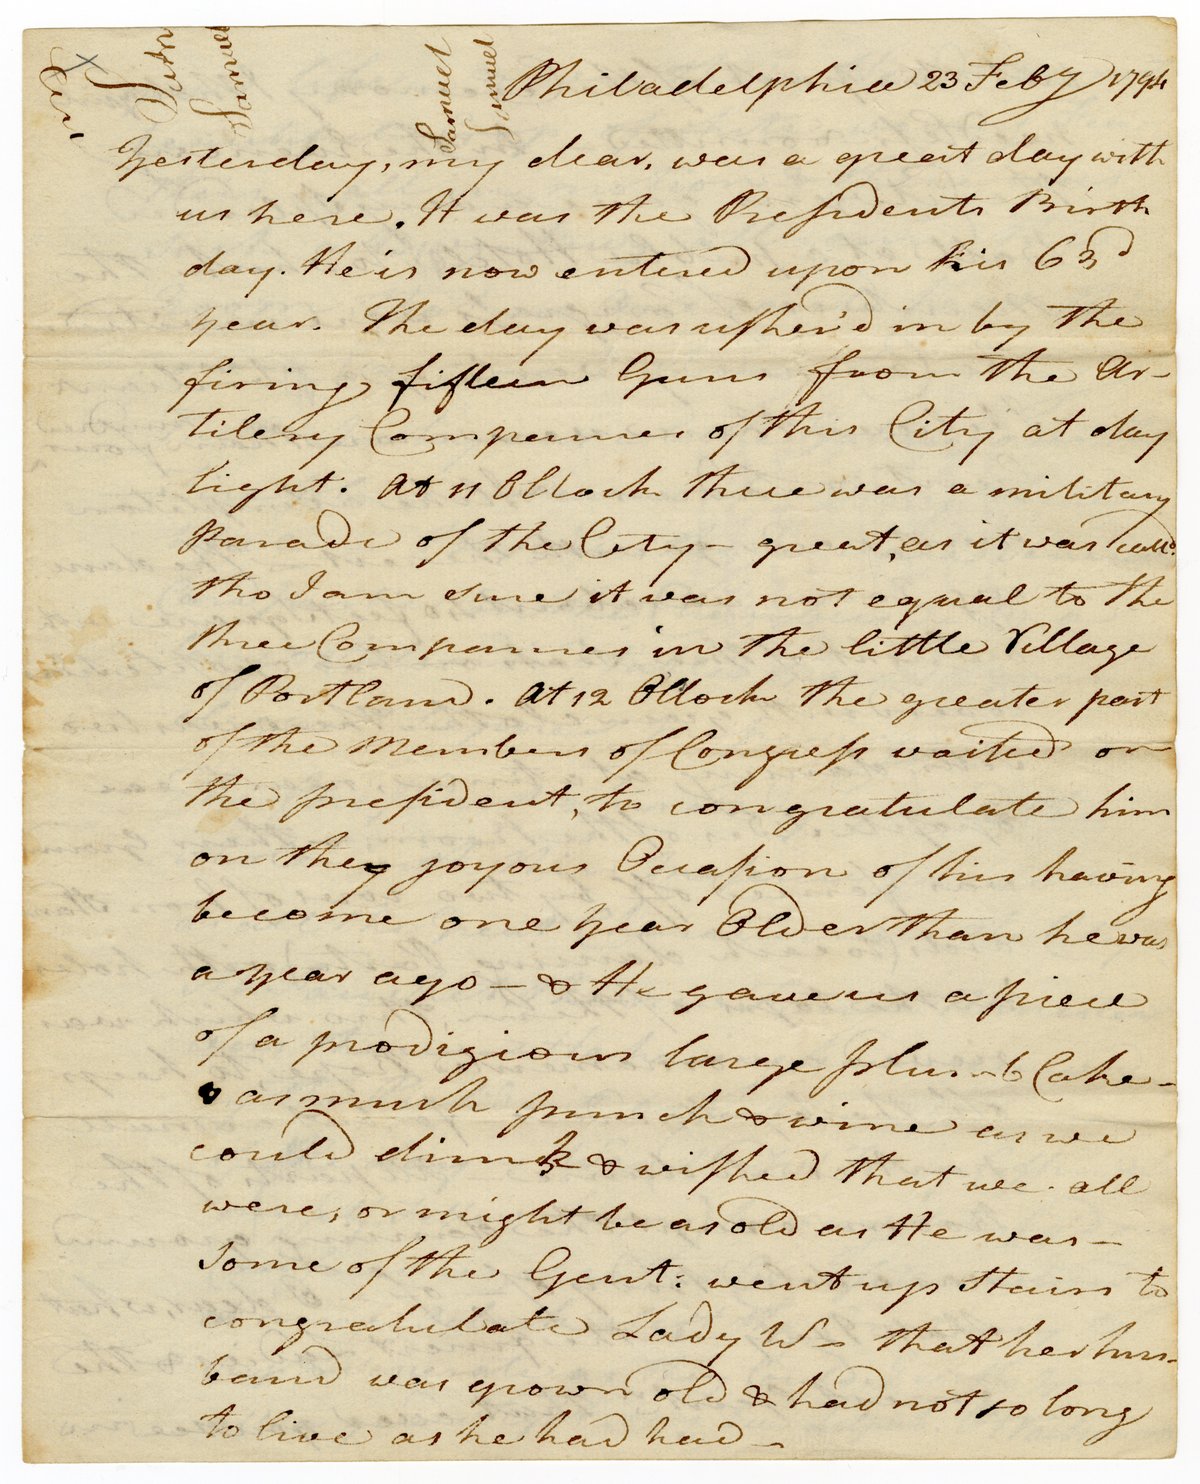 Samuel
Samuel
Samuel
Philadelphia 23 Feby 1794
Yesterday, my dear, was a great day with
us here. It was the Presidents Birth
day. He is now entered upon his 63d
year. The day was usher'd in by the
firing fifteen Guns from the Ar-
tilery Companies of this City at day
light. At 11 OClock there was a military
Parade of the City - great, as it was calld.
tho I am sure it was not equal to the
three Companies in the little Village
of Portland. At 12 OClock the greater part
of the Members of Congress waited on
the president, to congratulate him
on the joyous Occasion of his having
become one year Older than he was
a year ago - & He gave us a piece
of a prodigious large plumb Cake -
as much punch & wine as we
could drink & wished that we all
were, or might be as old as He was -
Some of the Gent: went up Stairs to
congratulate Lady W- that her hus-
band was grown old & had not so long
to live as he had had -